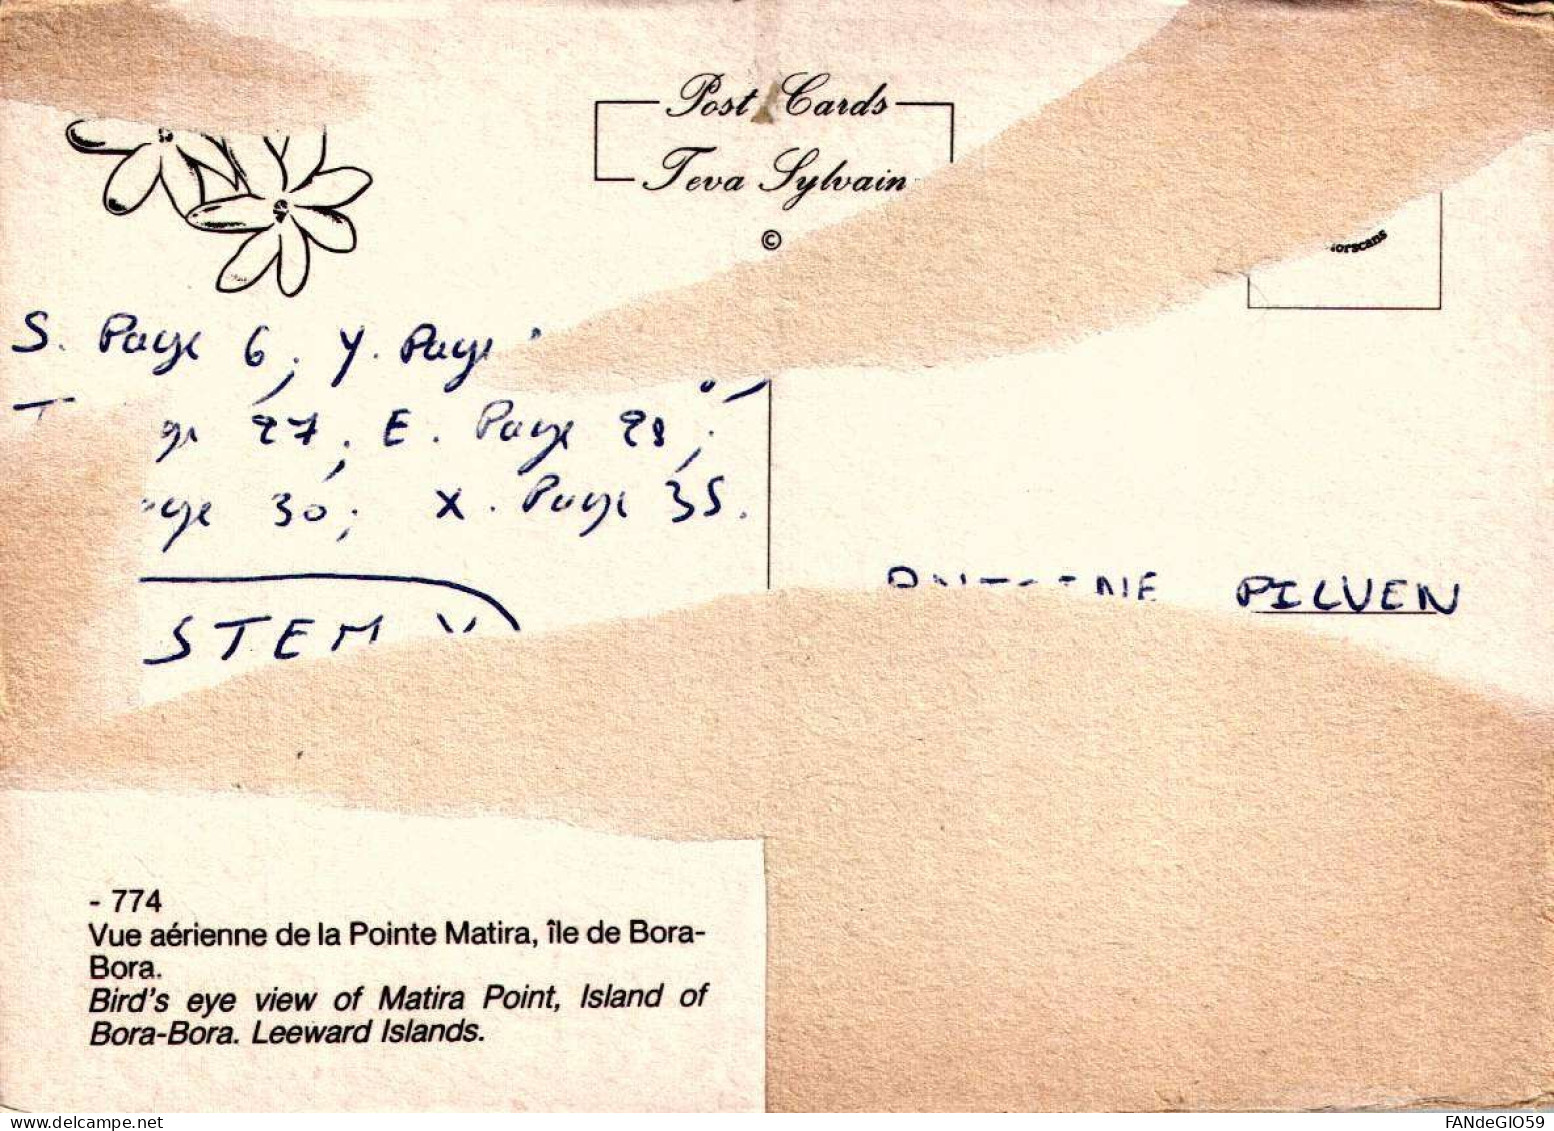 Post Cards
Teva Sylvain
©
S. Page 6; Y. Page
27; E. Page 28;
30; X. Page 35.
STEM
PILVEN
- 774
Vue aérienne de la Pointe Matira, île de Bora-
Bora.
Bird's eye view of Matira Point, Island of
Bora-Bora. Leeward Islands.
delcampe.net
FANdeGIO59